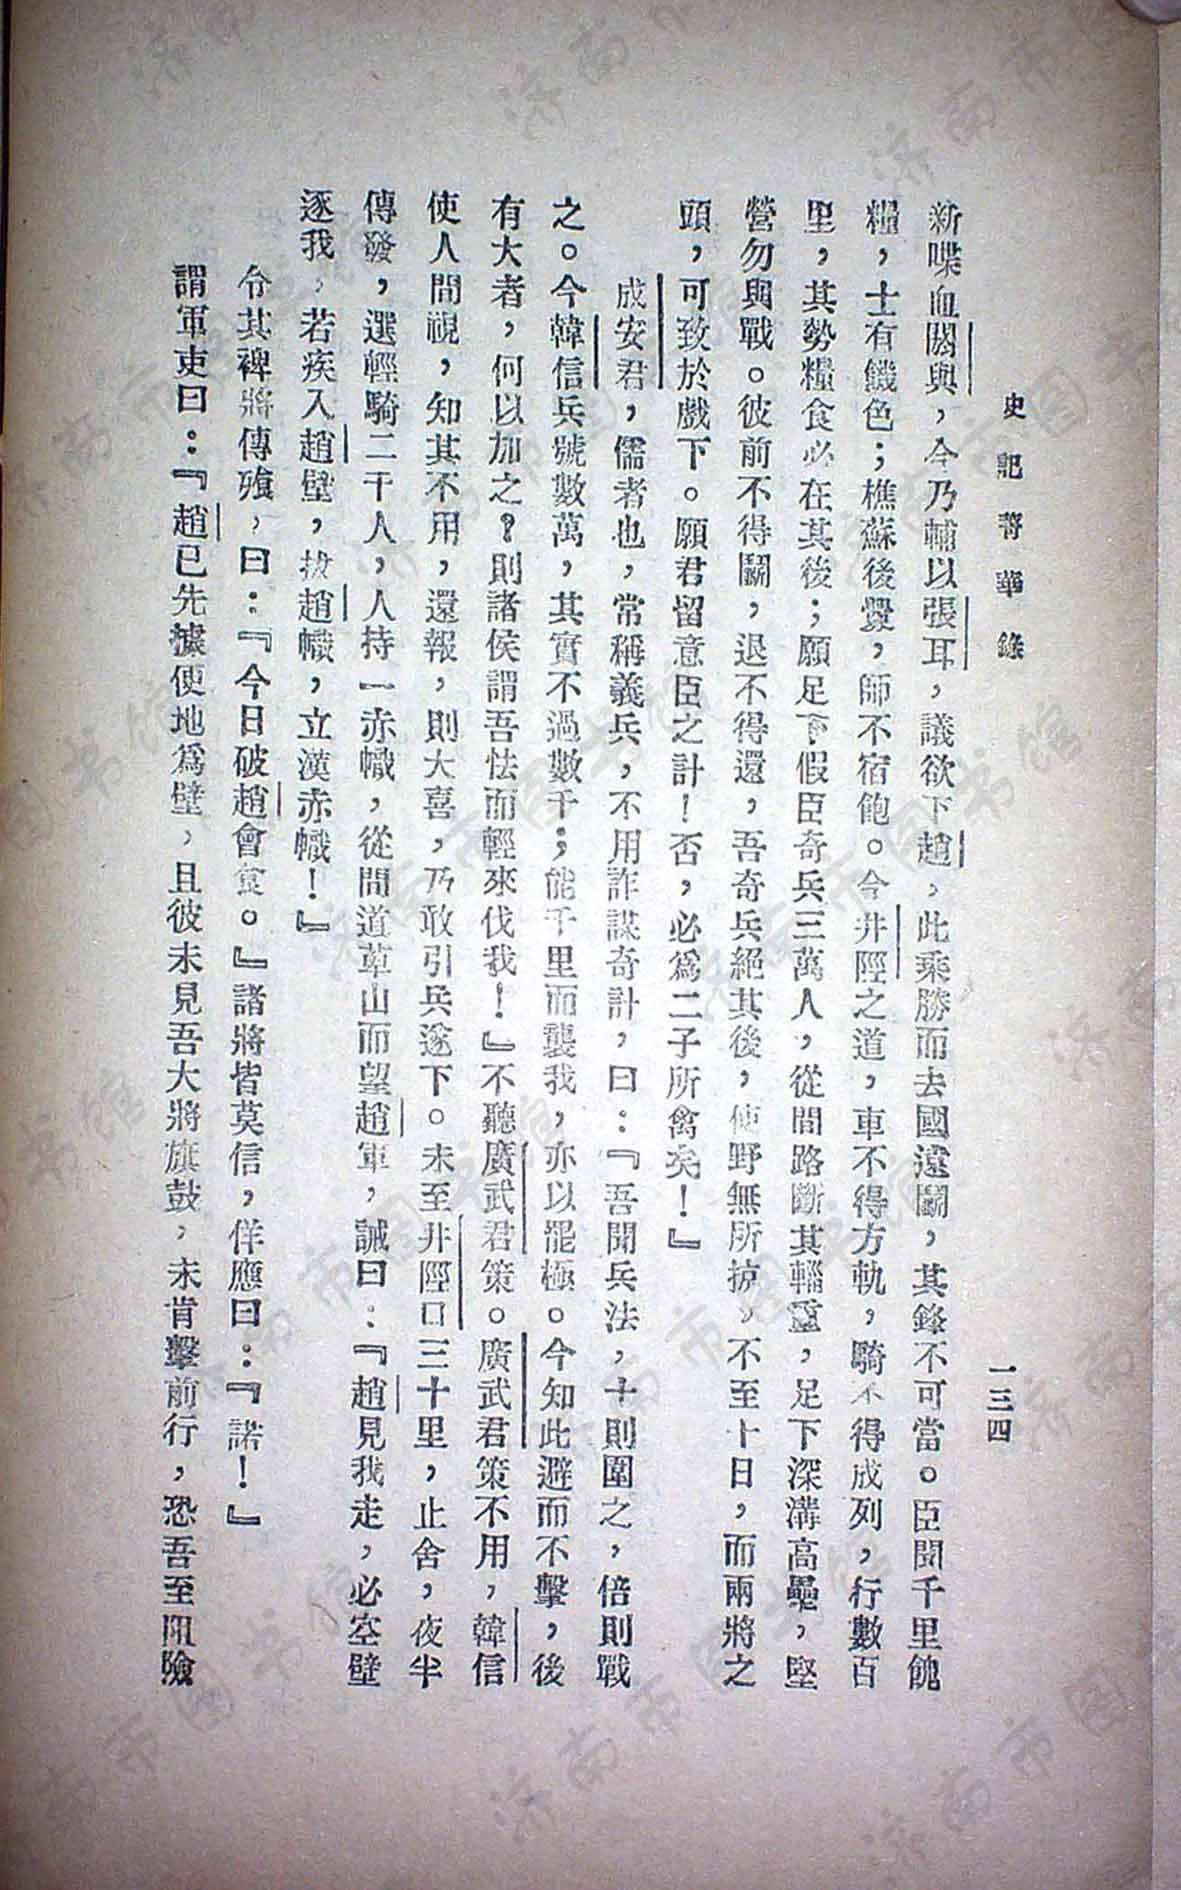 史記菁華錄
一三四
新喋血閼與，今乃輔以張耳，議欲下趙，此乘勝而去國遠鬭，其鋒不可當。臣聞千里餽
糧，士有饑色；樵蘇後爨，師不宿飽。今井陘之道，車不得方軌，騎不得成列，行數百
里，其勢糧食必在其後；願足下假臣奇兵三萬人，從間路斷其輜重，足下深溝高壘，堅
營勿與戰。彼前不得鬭，退不得還，吾奇兵絕其後，使野無所掠，不至十日，而兩將之
頭，可致於戲下。願君留意臣之計！否，必爲二子所禽矣！』
成安君，儒者也，常稱義兵，不用詐謀奇計，曰：『吾聞兵法，十則圍之，倍則戰
之。今韓信兵號數萬，其實不過數千；能千里而襲我，亦以罷極。今知此避而不擊，後
有大者，何以加之？則諸侯謂吾怯而輕來伐我！』不聽廣武君策。廣武君策不用，韓信
使人間視，知其不用，還報，則大喜，乃敢引兵遂下。未至井陘口三十里，止舍，夜半
傳發，選輕騎二千人，人持一赤幟，從間道萆山而望趙軍，誡曰：『趙見我走，必空壁
逐我，若疾入趙壁，拔趙幟，立漢赤幟！』
令其裨將傳飱，曰：『今日破趙會食。』諸將皆莫信，佯應曰：『諾！』
謂軍吏曰：『趙已先據便地爲壁，且彼未見吾大將旗鼓，未肯擊前行，恐吾至阻險
济南市图书馆